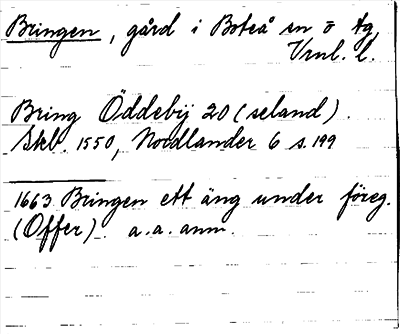 Bringen, gård i Boteå sn o tg,
Vrnl. l.
Bring Öddebij 20 (seland).
Skb. 1550, Nordlander 6 s. 199
1663 Bringen ett äng under föreg.
(Offer). a.a. anm.